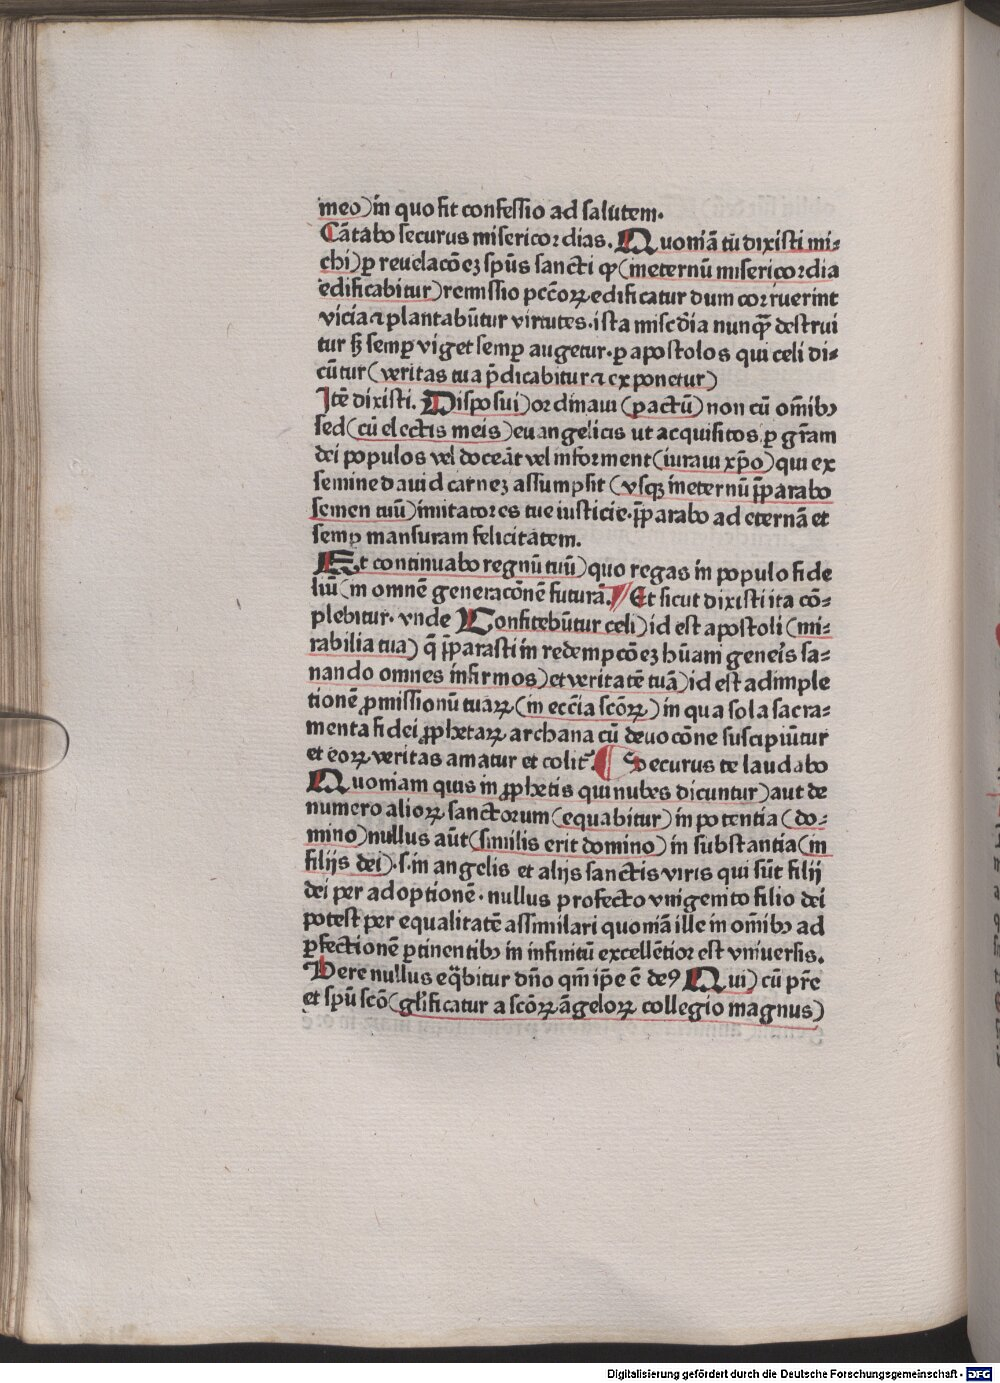 meo) in quo fit confessio ad salutem.
Cãtabo securus misericordias. Quoniã tu dixisti mi⸗
chi) ꝑ reuelacõeꝫ spũs sancti ꝙ (in eternũ misericordia
edificabitur) remissio pcc̃oꝝ edificatur dum corruerint
vicia ⁊ plantabũtur virtutes. ista misc̃dia nunꝗ̃ destrui
tur sꝫ semꝑ viget semꝑ augetur. ꝑ apostolos qui celi di⸗
cũtur (veritas tua p̃dicabitur ⁊ exponetur)
Itẽ dixisti. Disposui) ordinaui (pactũ) non cũ om̃ibꝰ
sed (cũ electis meis) euangelicis ut acquisitos ꝑ gr̃am
dei populos vel doceãt vel informent (iuraui xp̃o) qui ex
semine dauid carneꝫ assumpsit (vsqꝫ in eternũ p̃parabo
semen tuũ) imitatores tue iusticie. p̃parabo ad eternã et
semꝑ mansuram felicitatem.
Et continuabo regnũ tuũ) quo regas in populo fide
liũ (in omnẽ generacõnẽ futurã. Et sicut dixisti ita cõ⸗
plebitur. vnde Confitebũtur celi) id est apostoli (mi⸗
rabilia tua) q̃ p̃parasti in redempcõeꝫ hũani generis sa⸗
nando omnes infirmos) et veritatẽ tuã) id est adimple
tionẽ ꝓmissionũ tuaꝝ (in ecc̃ia scõꝝ) in qua sola sacra⸗
menta fidei ꝓphetaꝝ archana cũ deuocõne suscipiũtur
et eoꝝ veritas amatur et colit᷑. Securus te laudabo
Quoniam quis in ꝓphetis qui nubes dicuntur) aut de
numero alioꝝ sanctorum (equabitur) in potentia (do⸗
mino) nullus aũt (similis erit domino) in substantia (in
filijs dei) .s. in angelis et alijs sanctis viris qui sũt filij
dei per adoptionẽ. nullus profecto vnigenito filio dei
potest per equalitatẽ assimilari quoniã ille in om̃ibꝰ ad
ꝑfectionẽ ꝑtinentibꝰ in infinitũ excellẽtior est vniuersis.
Vere nullus eq̃bitur dño qm̃ ip̃e ẽ deꝰ Qui) cũ pr̃e
et spũ scõ (glificatur a scõꝝ ãgeloꝝ collegio magnus)
Digitalisierung gefördert durch die Deutsche Forschungsgemeinschaft - DFG